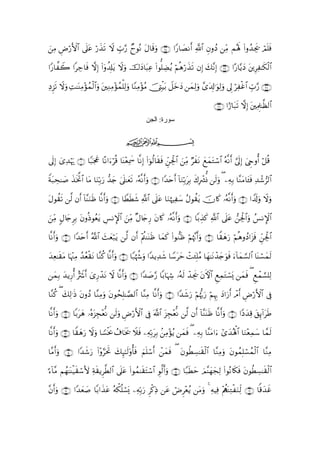 فَلَمْ يَجِدُوا۟ لَهُم مِّن دُونِ ٱللَّهِ أَنصَارًا ۝ وَقَالَ نُوحٌ رَّبِّ لَا تَذَرْ عَلَى ٱلْأَرْضِ مِنَ
ٱلْكَٰفِرِينَ دَيَّارًا ۝ إِنَّكَ إِن تَذَرْهُمْ يُضِلُّوا۟ عِبَادَكَ وَلَا يَلِدُوٓا۟ إِلَّا فَاجِرًا كَفَّارًا
۝ رَّبِّ ٱغْفِرْ لِى وَلِوَٰلِدَىَّ وَلِمَن دَخَلَ بَيْتِىَ مُؤْمِنًا وَلِلْمُؤْمِنِينَ وَٱلْمُؤْمِنَٰتِ وَلَا تَزِدِ
ٱلظَّٰلِمِينَ إِلَّا تَبَارًۢا ۝
سورة: الجن
قُلْ أُوحِىَ إِلَىَّ أَنَّهُ ٱسْتَمَعَ نَفَرٌ مِّنَ ٱلْجِنِّ فَقَالُوٓا۟ إِنَّا سَمِعْنَا قُرْءَانًا عَجَبًا ۝ يَهْدِىٓ إِلَى
ٱلرُّشْدِ فَـَٔامَنَّا بِهِۦ ۖ وَلَن نُّشْرِكَ بِرَبِّنَآ أَحَدًا ۝ وَأَنَّهُۥ تَعَٰلَىٰ جَدُّ رَبِّنَا مَا ٱتَّخَذَ صَٰحِبَةً
وَلَا وَلَدًا ۝ وَأَنَّهُۥ كَانَ يَقُولُ سَفِيهُنَا عَلَى ٱللَّهِ شَطَطًا ۝ وَأَنَّا ظَنَنَّآ أَن لَّن تَقُولَ
ٱلْإِنسُ وَٱلْجِنُّ عَلَى ٱللَّهِ كَذِبًا ۝ وَأَنَّهُۥ كَانَ رِجَالٌ مِّنَ ٱلْإِنسِ يَعُوذُونَ بِرِجَالٍ مِّنَ
ٱلْجِنِّ فَزَادُوهُمْ رَهَقًا ۝ وَأَنَّهُمْ ظَنُّوا۟ كَمَا ظَنَنتُمْ أَن لَّن يَبْعَثَ ٱللَّهُ أَحَدًا ۝ وَأَنَّا
لَمَسْنَا ٱلسَّمَآءَ فَوَجَدْنَٰهَا مُلِئَتْ حَرَسًا شَدِيدًا وَشُهُبًا ۝ وَأَنَّا كُنَّا نَقْعُدُ مِنْهَا مَقَٰعِدَ
لِلسَّمْعِ ۖ فَمَن يَسْتَمِعِ ٱلْـَٔانَ يَجِدْ لَهُۥ شِهَابًا رَّصَدًا ۝ وَأَنَّا لَا نَدْرِىٓ أَشَرٌّ أُرِيدَ بِمَن
فِى ٱلْأَرْضِ أَمْ أَرَادَ بِهِمْ رَبُّهُمْ رَشَدًا ۝ وَأَنَّا مِنَّا ٱلصَّٰلِحُونَ وَمِنَّا دُونَ ذَٰلِكَ ۖ كُنَّا
طَرَآئِقَ قِدَدًا ۝ وَأَنَّا ظَنَنَّآ أَن لَّن نُّعْجِزَ ٱللَّهَ فِى ٱلْأَرْضِ وَلَن نُّعْجِزَهُۥ هَرَبًا ۝ وَأَنَّا
لَمَّا سَمِعْنَا ٱلْهُدَىٰٓ ءَامَنَّا بِهِۦ ۖ فَمَن يُؤْمِنۢ بِرَبِّهِۦ فَلَا يَخَافُ بَخْسًا وَلَا رَهَقًا ۝ وَأَنَّا
مِنَّا ٱلْمُسْلِمُونَ وَمِنَّا ٱلْقَٰسِطُونَ ۖ فَمَنْ أَسْلَمَ فَأُو۟لَٰٓئِكَ تَحَرَّوْا۟ رَشَدًا ۝ وَأَمَّا
ٱلْقَٰسِطُونَ فَكَانُوا۟ لِجَهَنَّمَ حَطَبًا ۝ وَأَلَّوِ ٱسْتَقَٰمُوا۟ عَلَى ٱلطَّرِيقَةِ لَأَسْقَيْنَٰهُم مَّآءً
غَدَقًا ۝ لِّنَفْتِنَهُمْ فِيهِ ۚ وَمَن يُعْرِضْ عَن ذِكْرِ رَبِّهِۦ يَسْلُكْهُ عَذَابًا صَعَدًا ۝ وَأَنَّ